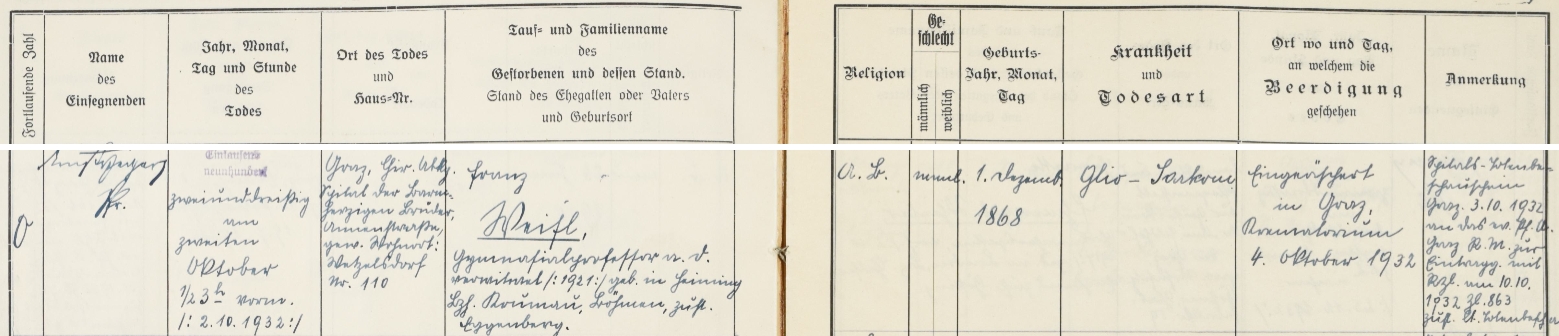 Fortlaufende Zahl
Name
des
Einsegnenden
Jahr, Monat,
Tag und Stunde
des
Todes
Ort des Todes
und
Haus=Nr.
Tauf= und Familienname
des
Gestorbenen und dessen Stand.
Stand des Ehegatten oder Vaters
und Geburtsort
Religion
Ge=
schlecht
männlich
weiblich
Geburts-
Jahr, Monat,
Tag
Krankheit
und
Todesart
Ort wo und Tag,
an welchem die
Beerdigung
geschehen
Anmerkung
0
Pfr.
Eintausend
neunhundert
zweiunddreißig
am
zweiten
Oktober
1/2 3 h vorm.
/: 2.10.1932 :/
Graz, Chir. Abtlg.
Spital der Barm-
herzigen Brüder,
Annenstraße,
gew. Wohnort:
Wetzelsdorf
Nr. 110
Franz
Weisl,
Gymnasialprofessor a. D.
verwitwet /: 1921 :/ geb. in
Bzh. Krumau, Böhmen, zust.
Eggenberg.
A. B.
männl.
1. Dezemb.
1868
Glio - Sarkom
Eingeäschert
in Graz,
Krematorium
4. Oktober 1932
Spitals-Totenbe-
schauschein
Graz. 3.10.1932
an das ev. Pf. A.
Graz R. M. zur
Eintragg. mit
Rzl. vom 10.10.
1932 Zl. 863
zust. lt. Totenbesch